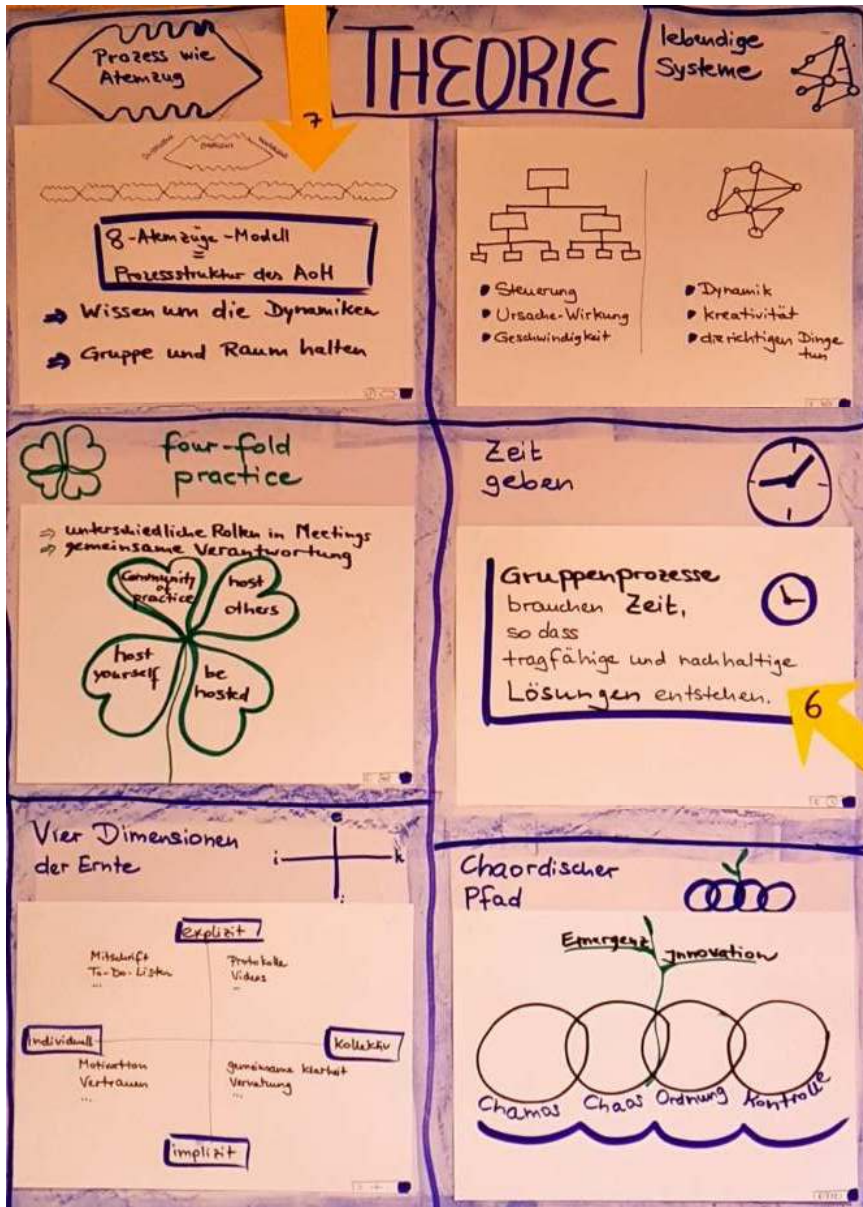 THEORIE
Prozess wie
Atemzug
7
8-Atemzüge-Modell
=
Prozessstruktur des AoH
⇒ Wissen um die Dynamiken
⇒ Gruppe und Raum halten
lebendige
Systeme
• Steuerung
• Ursache-Wirkung
• Geschwindigkeit
• Dynamik
• kreativität
• die richtigen Dinge
tun
four-fold
practice
⇒ unterschiedliche Rollen in Meetings
⇒ gemeinsame Verantwortung
Community
of
practice
host
others
host
yourself
be
hosted
Zeit
geben
Gruppenprozesse
brauchen Zeit,
so dass
tragfähige und nachhaltige
Lösungen entstehen.
6
Vier Dimensionen
der Ernte
e
i
k
i
explizit
Mitschrift
To-Do-Listen
...
Protokolle
Videos
...
individuell
kollektiv
Motivation
Vertrauen
...
gemeinsame Klarheit
...
implizit
Chaordischer
Pfad
Emergenz
Innovation
Chamos
Chaos
Ordnung
Kontrolle